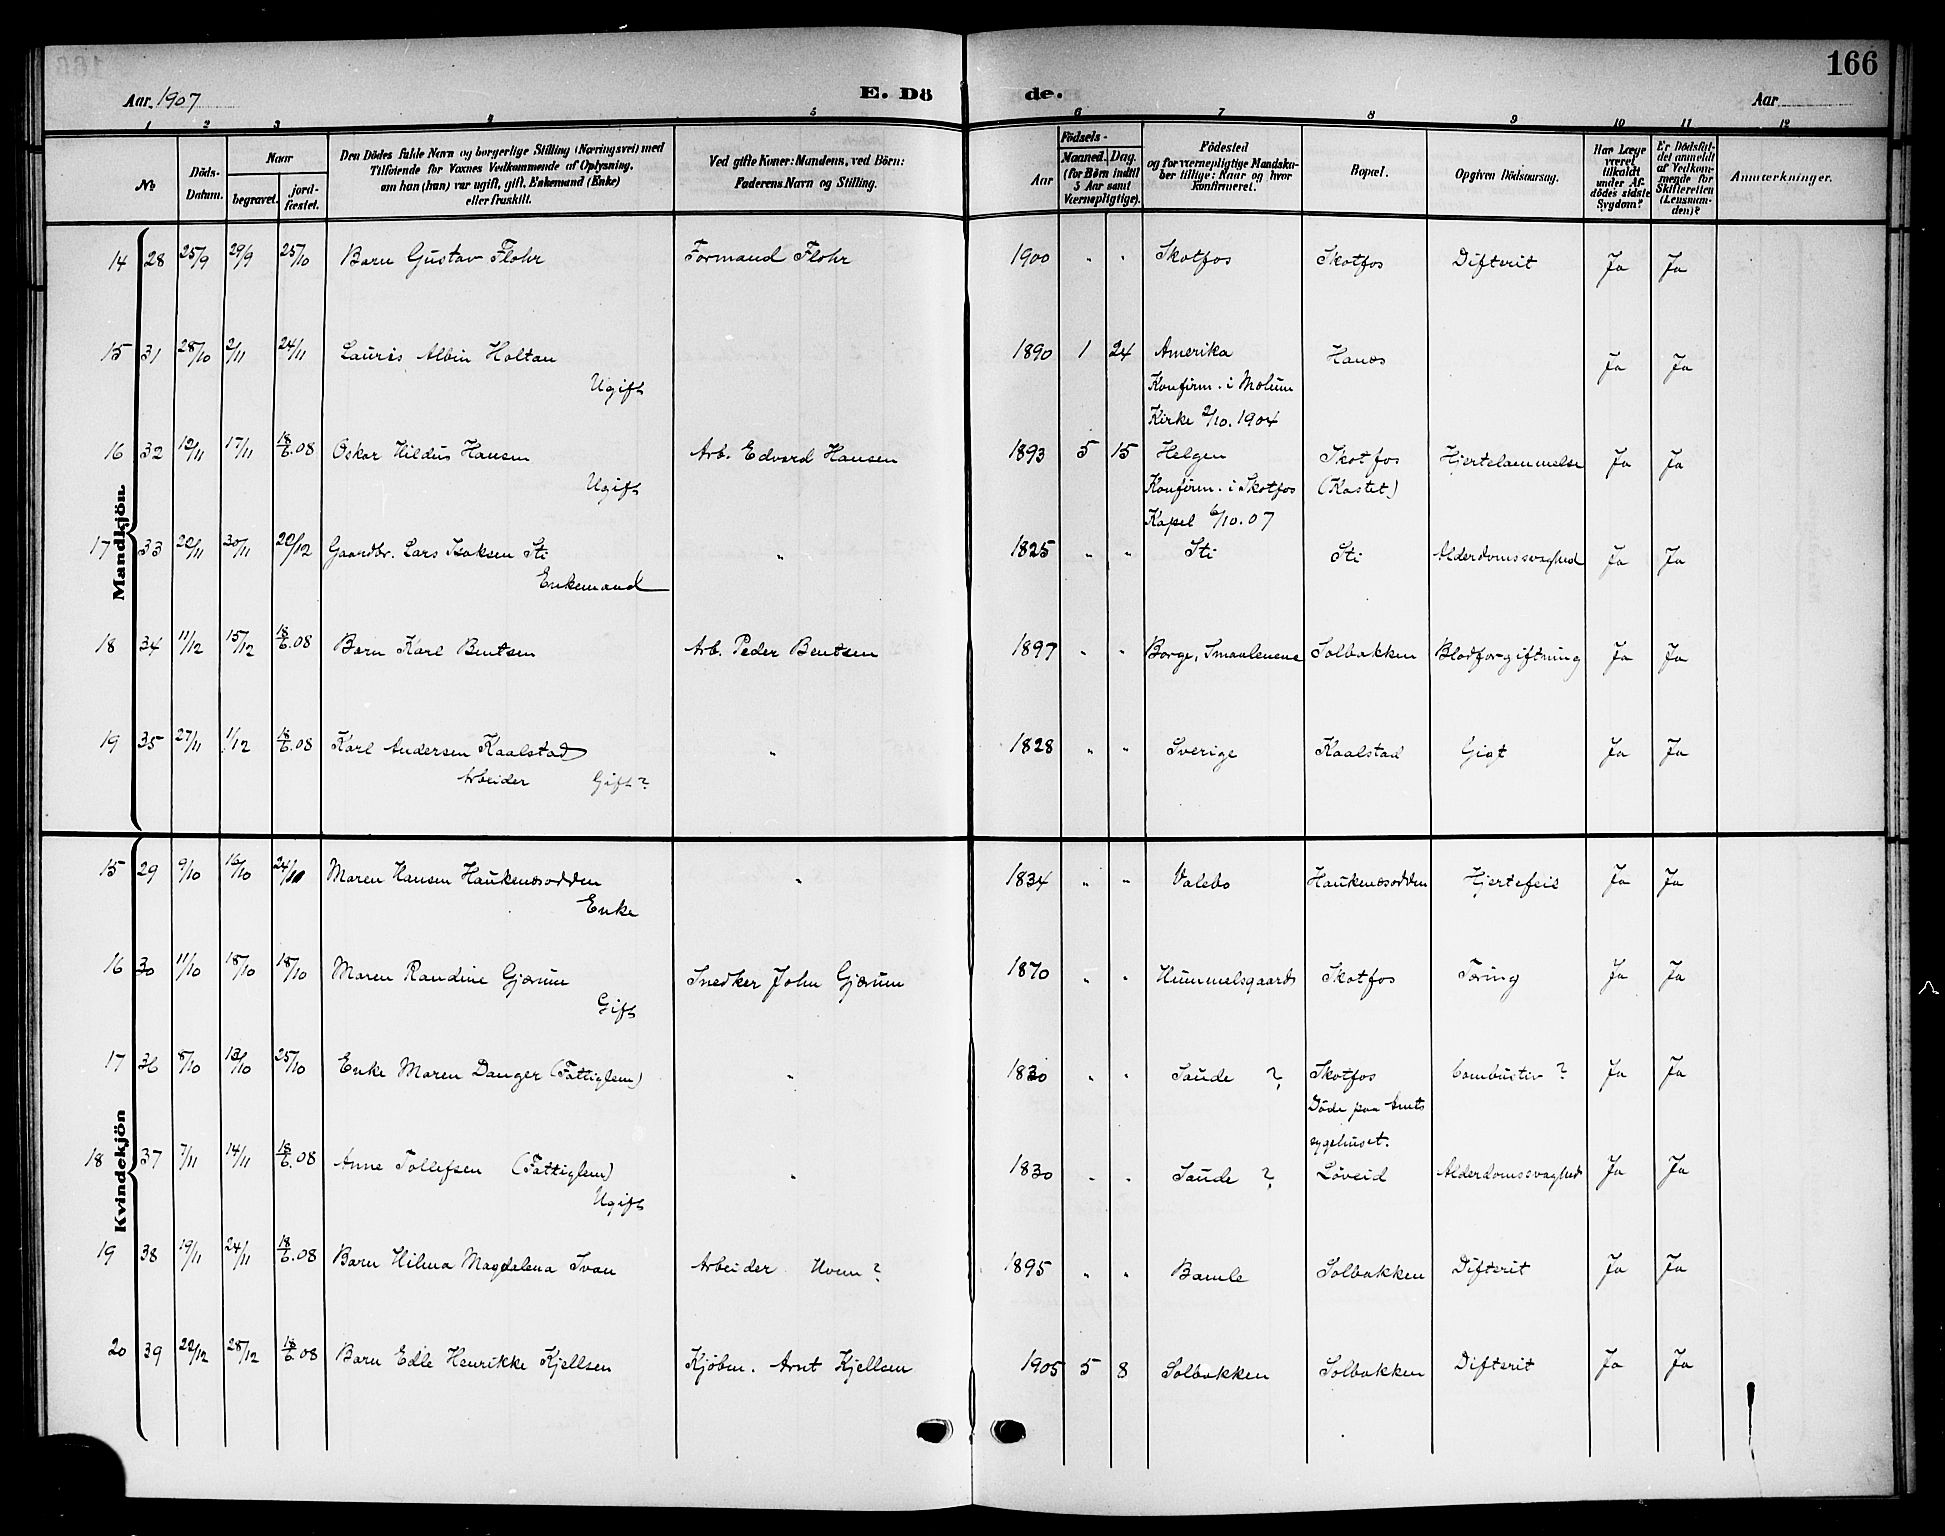 166
Aar 1907
E. Dö
de.
Aar
1 2 3 4 5 6 7 8 9 10 11 12
No
Döds-
Datum.
Naar
begravet.
jord-
fæstet.
Den Dödes fulde Navn og borgerlige Stilling (Næringsvei) med
Tilföiende for Voxnes Vedkommende af Oplysning,
om han (hun) var ugift, gift, Enkemand (Enke)
eller fraskilt.
Ved gifte Koner: Mandens, ved Börn:
Faderens Navn og Stilling.
Födsels-
Aar
Maaned. Dag.
(for Börn indtil
5 Aar samt
Værnepligtige).
Födested
og for værnepligtige Mandska-
ber tillige: Naar og hvor
konfirmeret.
Bopæl.
Opgiven Dödsaarsag.
Har Læge
været
tilkaldt
under Af-
dödes sidste
Sygdom?
Er Dödsfal-
det anmeldt
af Vedkom-
mende for
Skifteretten
(Lensman-
den)?
Anmærkninger.
Mandkjön
14 28 25/9 29/9 25/10 Barn Gustav Flohr Formand Flohr 1900 " " Skotfos Skotfos Difterit Ja Ja
15 31 28/10 2/11 24/11 Lauris Albin Holtan 1890 1 24 Amerika Hanæs Ja Ja
Ugift Konfirm. i Molum
Kirke 2/10. 1904
16 32 12/11 17/11 18/6.08 Oskar Hildus Hansen Arb. Edvard Hansen 1893 5 15 Helgen Skotfos Hjertelammelse Ja Ja
Ugift Konfirm. i Skotfos (Kastet)
Kapel 6/10.07
17 33 20/11 30/11 20/12 Gaardbr. Lars Isaksen Sti " 1825 " " Sti Sti Alderdomssvaghed Ja Ja
Enkemand
18 34 11/12 15/12 18/6.08 Barn Karl Bentsen Arb. Peder Bentsen 1897 " " Borge, Smaalenene Solbakken Blodforgiftning Ja Ja
19 35 27/11 1/12 18/6.08 Karl Andersen Kaalstad " 1828 " " Sverige Kaalstad Gigt Ja Ja
Arbeider Gift?
Kvindekjön
15 29 9/10 16/10 24/11 Maren Hansen Haukenæsodden " 1834 " " Valebo Haukenæsodden Hjertefeil Ja Ja
Enke
16 30 11/10 18/10 18/10 Maren Randine Gjærum Snedker John Gjærum 1870 " " Hummelsgaards Skotfos Tæring Ja Ja
Gift
17 36 8/10 13/10 25/10 Enke Maren Danger (Fattiglem) " 1830 " " Saude ? Skotfos Combustio ? Ja Ja
Døde paa Amts
sygehuset.
18 37 7/11 14/11 18/6.08 Anne Tollefsen (Fattiglem) " 1830 " " Saude ? Løveid Alderdomssvaghed Ja Ja
Ugift
19 38 19/11 24/11 18/6.08 Barn Hilma Magdalena Ivan Arbeider Hvem? 1895 " " Bamle Solbakken Difterit Ja Ja
20 39 22/12 28/12 18/6.08 Barn Edle Henrikke Kjellsen Kjøbm. Arnt Kjellsen 1905 5 8 Solbakken Solbakken Difterit Ja Ja